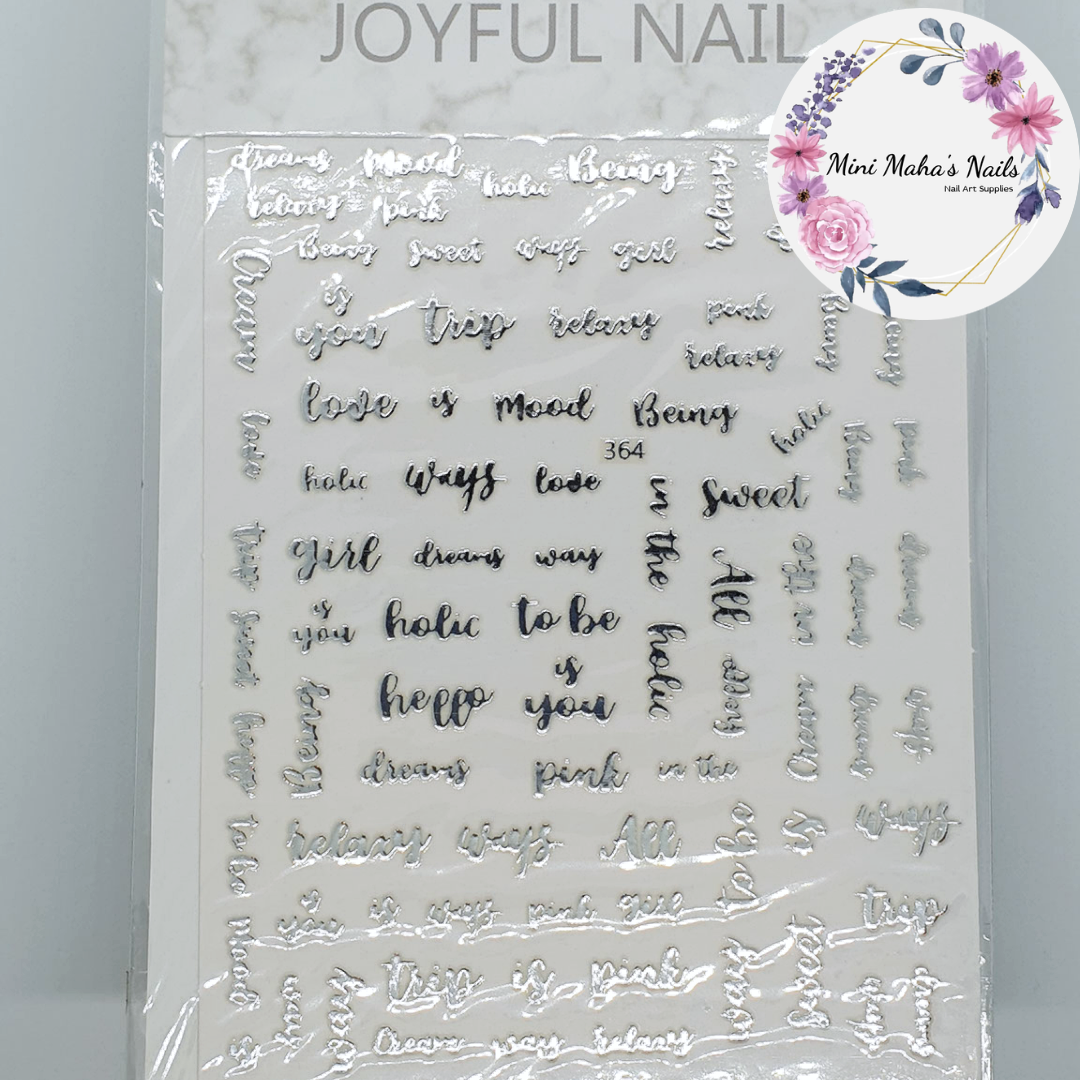 JOYFUL NAIL
Mini Maha's Nails
Nail Art Supplies
dreams Mood Being
holic
relaxy pink relaxy
Being sweet ways girl
Cream
is
you trip relaxy pink
relaxy
love is Mood Being
holic Being pink
364
holic ways love
in the
sweet
girl dreams way
All
in the
dreams
dreams
trip
is
you holic to be
sweet
holic
hello
hello
is
you
Being
Cream
dreams
ways
dreams pink in the
relaxy ways All
to be
is
ways
to be
is
you is ways pink girl
trip
Mood
trip is pink
way
sweet
Cream way relaxy
is